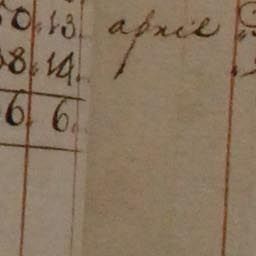 0.13. april
8.14.
6. 6.